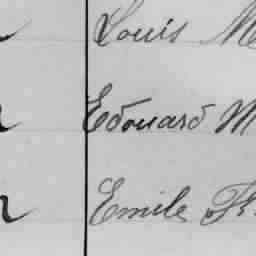 Louis M
Edouard M
Emile Fr